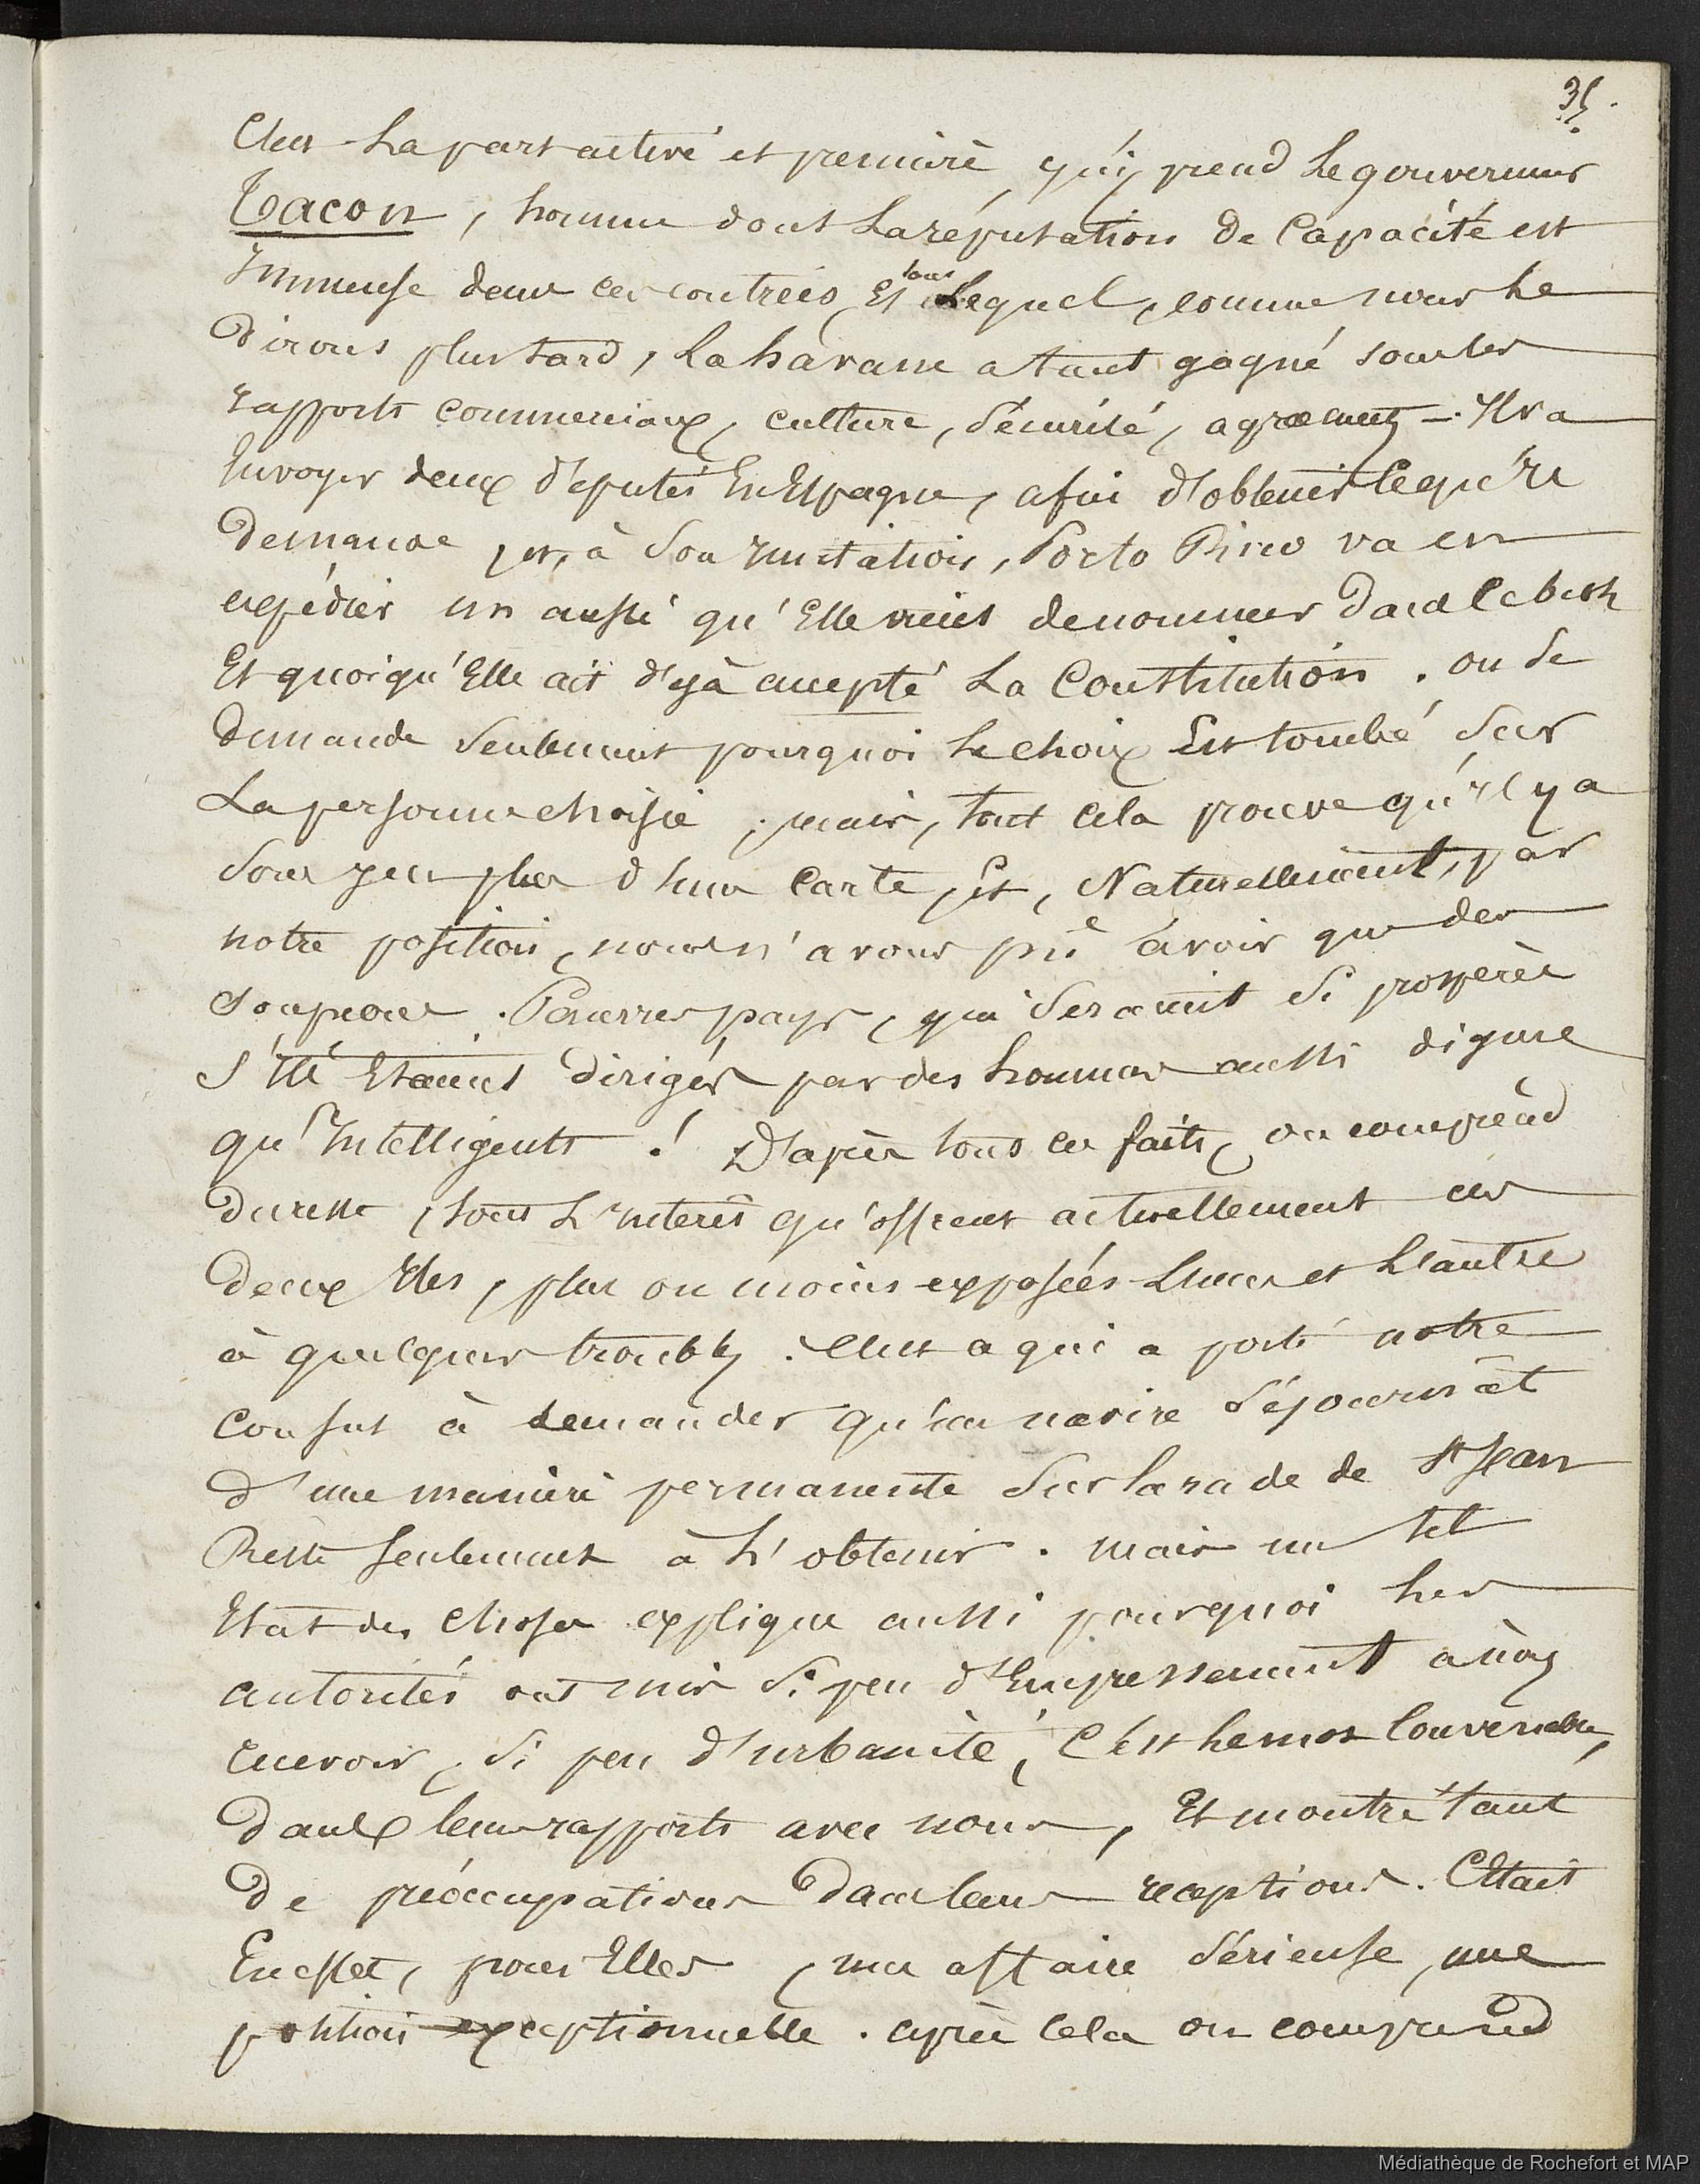 35.
C'est la part active et première, qu'y prend le gouverneur
Tacon, homme dont la réputation de capacité est
Immense dans ces contrées, Et sous Lequel, comme nous le
dirons plus tard, la havane a tant gagné sous les
rapports commerciaux, culture, sécurité, agréments. - Il va
Envoyer deux députés En Espagne, afin d'obtenir ce qu'il
demande, et, à son imitation, Porto Rico va en
expédier un aussi qu'Elle vient de nommer dans ce but
Et quoiqu'Elle ait déjà accepté la Constitution. on se
demande seulement pourquoi le choix Est tombé sur
La personne choisie; mais, tout cela prouve qu'il y a
sous jeu plus d'une carte, Et, Naturellement, par
notre position, nous n'avons pû avoir que des
soupçons. Pauvres pays, qui seraient si prospères
s'ils Etaient dirigés par des hommes aussi dignes
qu'Intelligents! D'après tous ces faits, on comprend
du reste, tout L'Interêt qu'offrent actuellement ces
deux Iles, plus ou moins exposées L'une et L'autre
à quelques troubles. C'est ce qui a porté notre
Consul à demander qu'un navire séjournât
d'une manière permanente sur la rade de St Jean
Reste seulement à L'obtenir. mais un tel
Etat des choses explique aussi pourquoi les
autorités ont mis si peu d'Empressement à nous
recevoir, si peu d'urbanité, C'est le mot Convenable,
dans leurs rapports avec nous, Et montré tant
de préoccupations dans leurs receptions. C'Etait
En effet, pour Elles, une affaire sérieuse, une
position exceptionnelle. après cela on comprend
Médiathèque de Rochefort et MAP